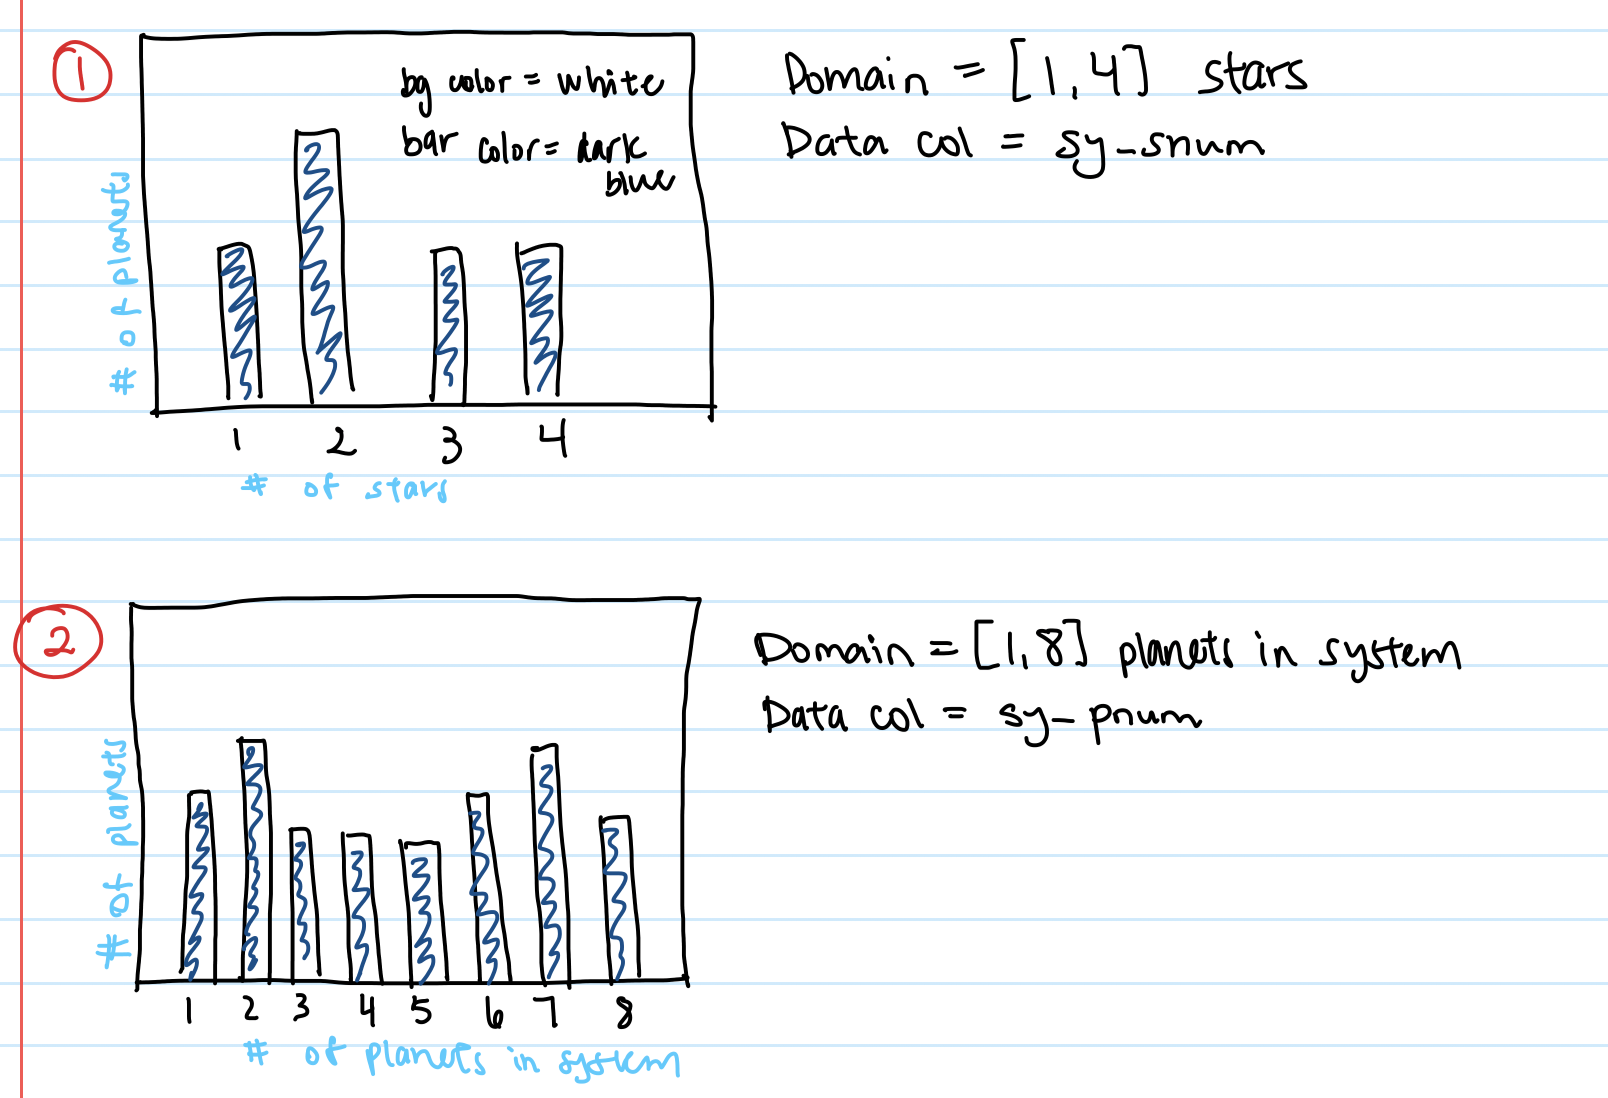 1
bg color = white
bar color = dark
blue
# of planets
1 2 3 4
# of stars
Domain = [1, 4] stars
Data col = sy_snum
2
# of planets
1 2 3 4 5 6 7 8
# of planets in system
Domain = [1, 8] planets in system
Data col = sy_pnum